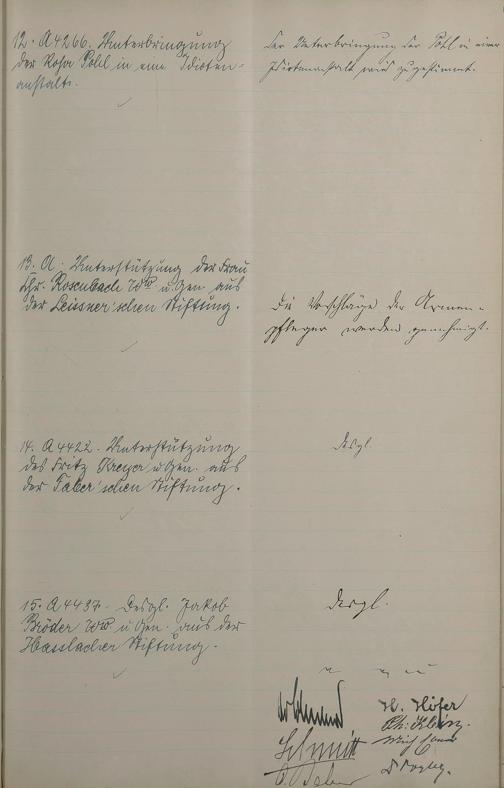 12. A 4266. Unterbringung
der Rosa Pohl in eine Idioten-
anstalt.
Der Unterbringung der Pohl in einer
Idiotenanstalt wird zugestimmt.
13. A. Unterstützung der Frau
Chr. Rosenbach Wwe u. Gen. aus
der Leusner'schen Stiftung.
Die Vorschläge der Armen-
pfleger werden genehmigt.
14. A 4422. Unterstützung
des Fritz Kreyer u. Gen. aus
der Faber'schen Stiftung.
desgl.
15. A 4437. Desgl. Jakob
Bröder Wwe u. Gen. aus der
Hasslacher Stiftung.
desgl.
H. Höfer
Schmitt